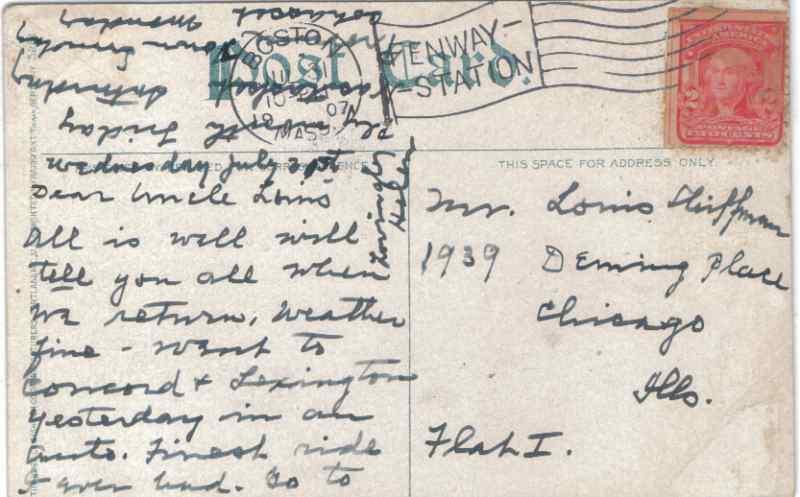 Post Card.
BOSTON
MASS.
07
FENWAY-
STATION
2
THIS SPACE FOR ADDRESS ONLY.
Wednesday July 31st
Dear Uncle Louis
All is well will
tell you all when
we return. Weather
fine - went to
Concord & Lexington
yesterday in an
auto. Finest ride
I ever had. Go to
Friday
Saturday
Monday
Lovingly
Helen
Mr. Louis Huffman
1939 Deming Place
Chicago
Ills.
Flat I.